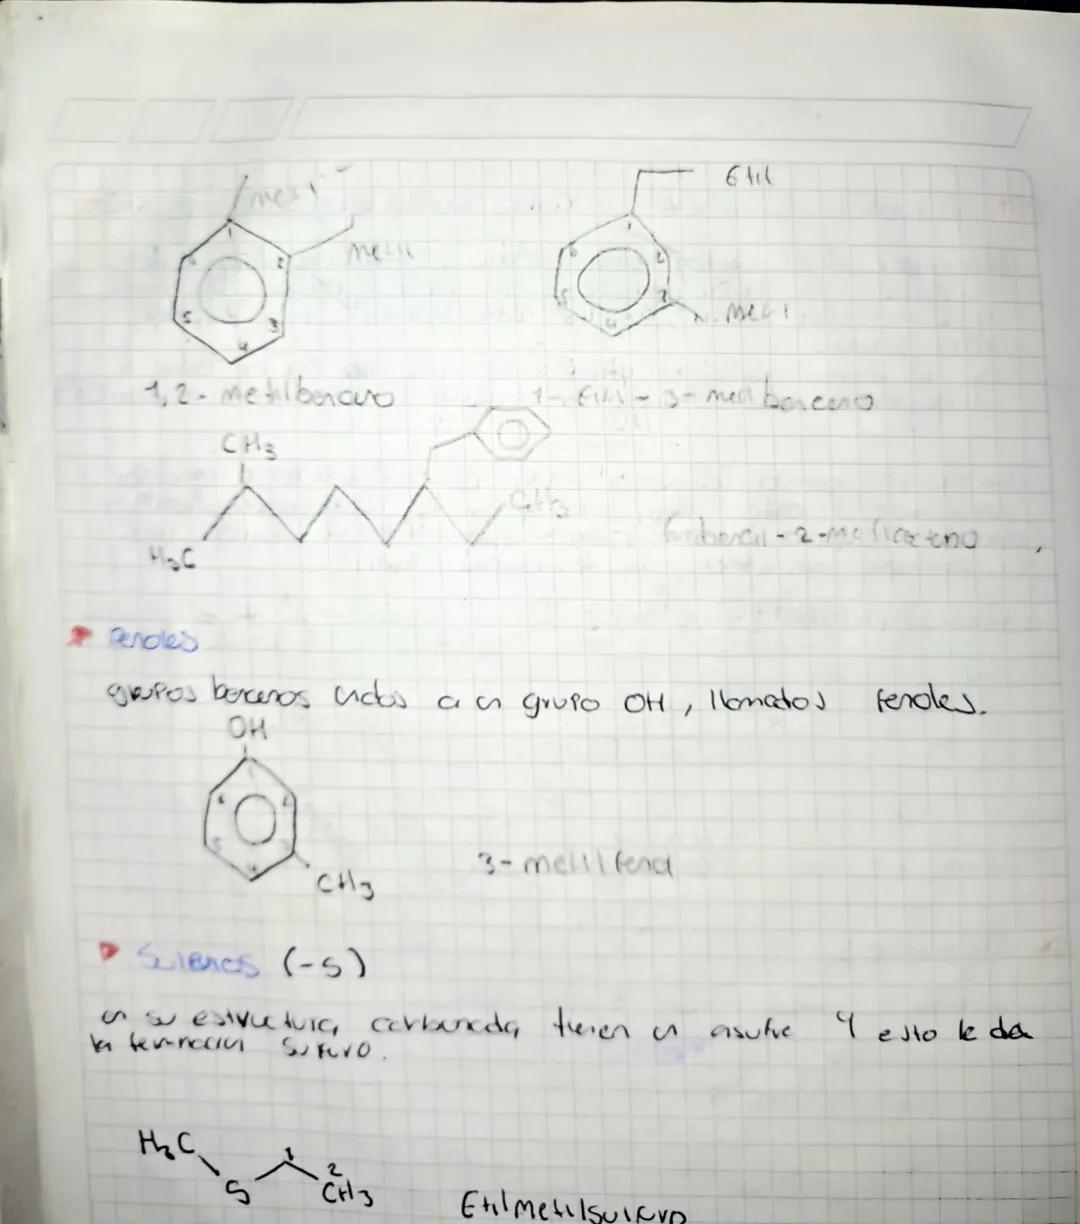 metil
Etil
1
2
3
4
5
6
metil
1
2
3
4
5
6
metil
1,2-metilbenceno
1-Etil-3-metilbenceno
CH3
CH3
H3C
-2-metil
Fenoles
grupos bencenos unidos a un grupo OH, llamados fenoles.
OH
1
2
3
4
5
6
CH3
3-metilfenol
(-S)
en su estructura carbonada, tienen un asufre y esto le da
la terminacion sulfuro.
H3C
S
1
2
CH3
Etilmetilsulfuro